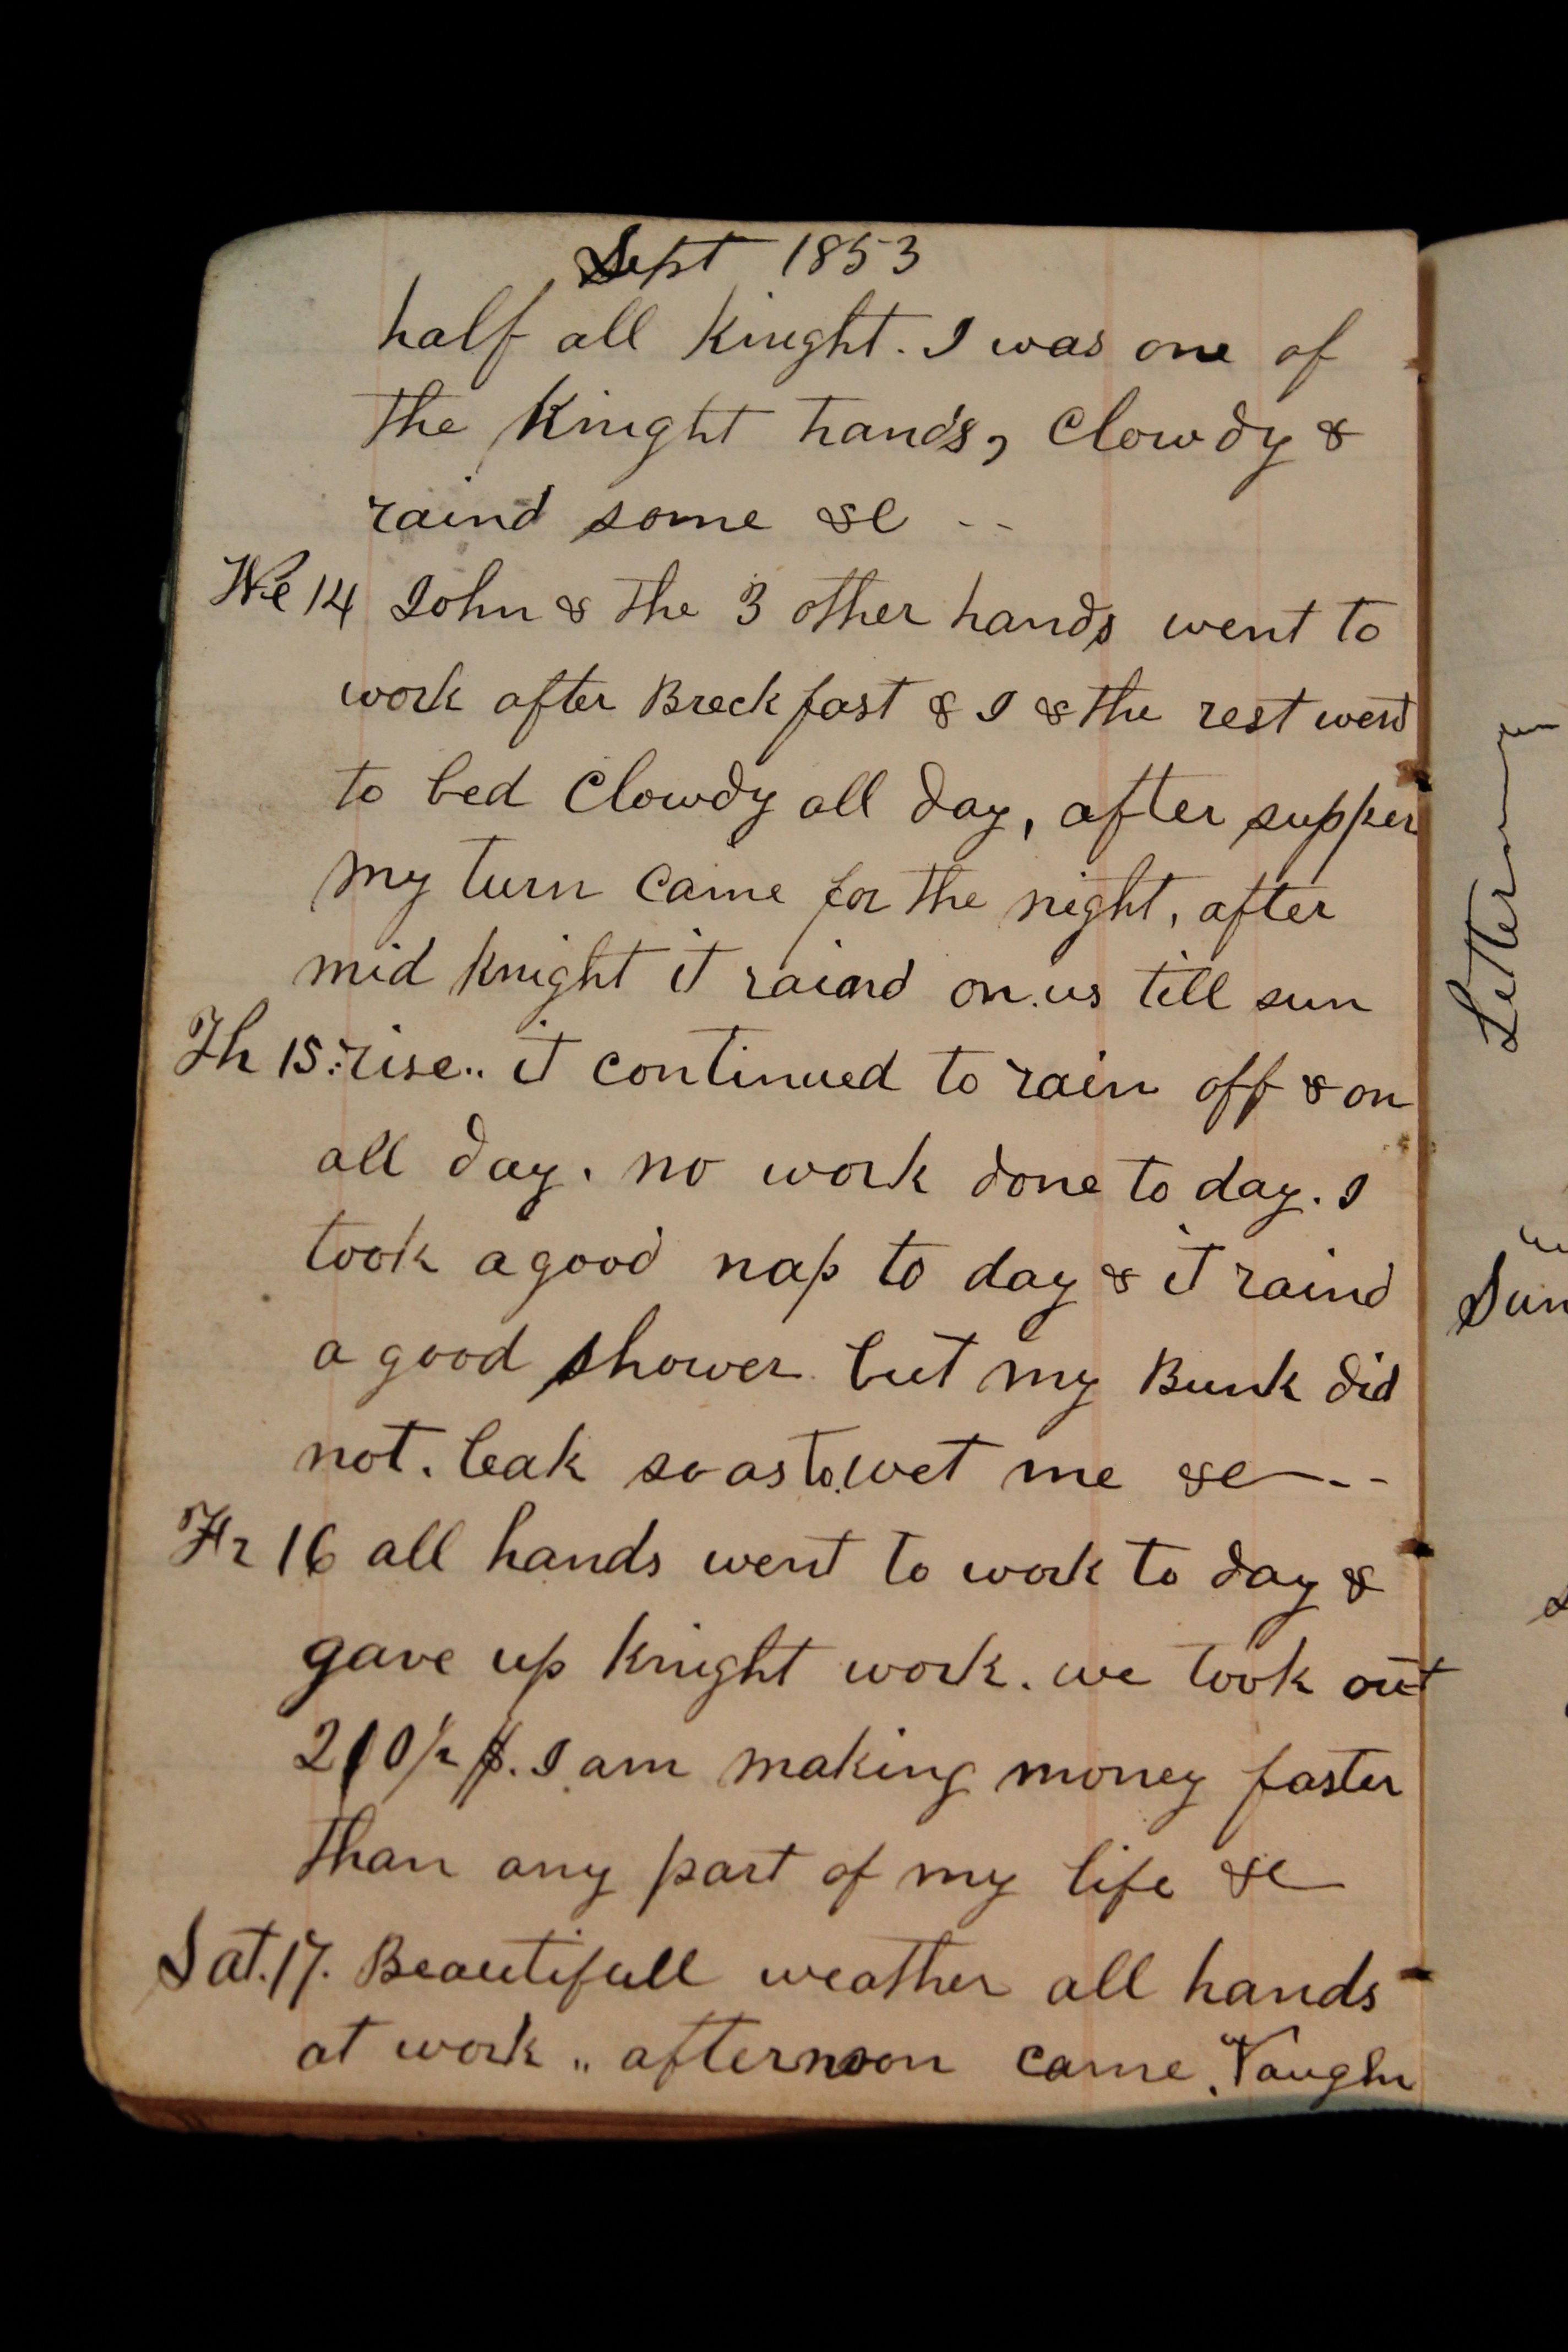 Sept 1853
half all Knight. I was one of
the Knight hands, Clowdy &
raind some &c --
We 14 John & the 3 other hands went to
work after Breckfast & I & the rest went
to bed Clowdy all day, after supper
my turn came for the night, after
mid knight it raind on us till sun
Th 15 rise.. it continued to rain off & on
all day. no work done to day. I
took a good nap to day & it raind
a good shower but my Bunk did
not. leak so as to wet me &c --
Fr 16 all hands went to work to day &
gave up knight work. we took out
210½ $. I am making money faster
than any part of my life &c
Sat. 17. Beautifull weather all hands
at work .. afternoon came Vaughn
Letter
Sun